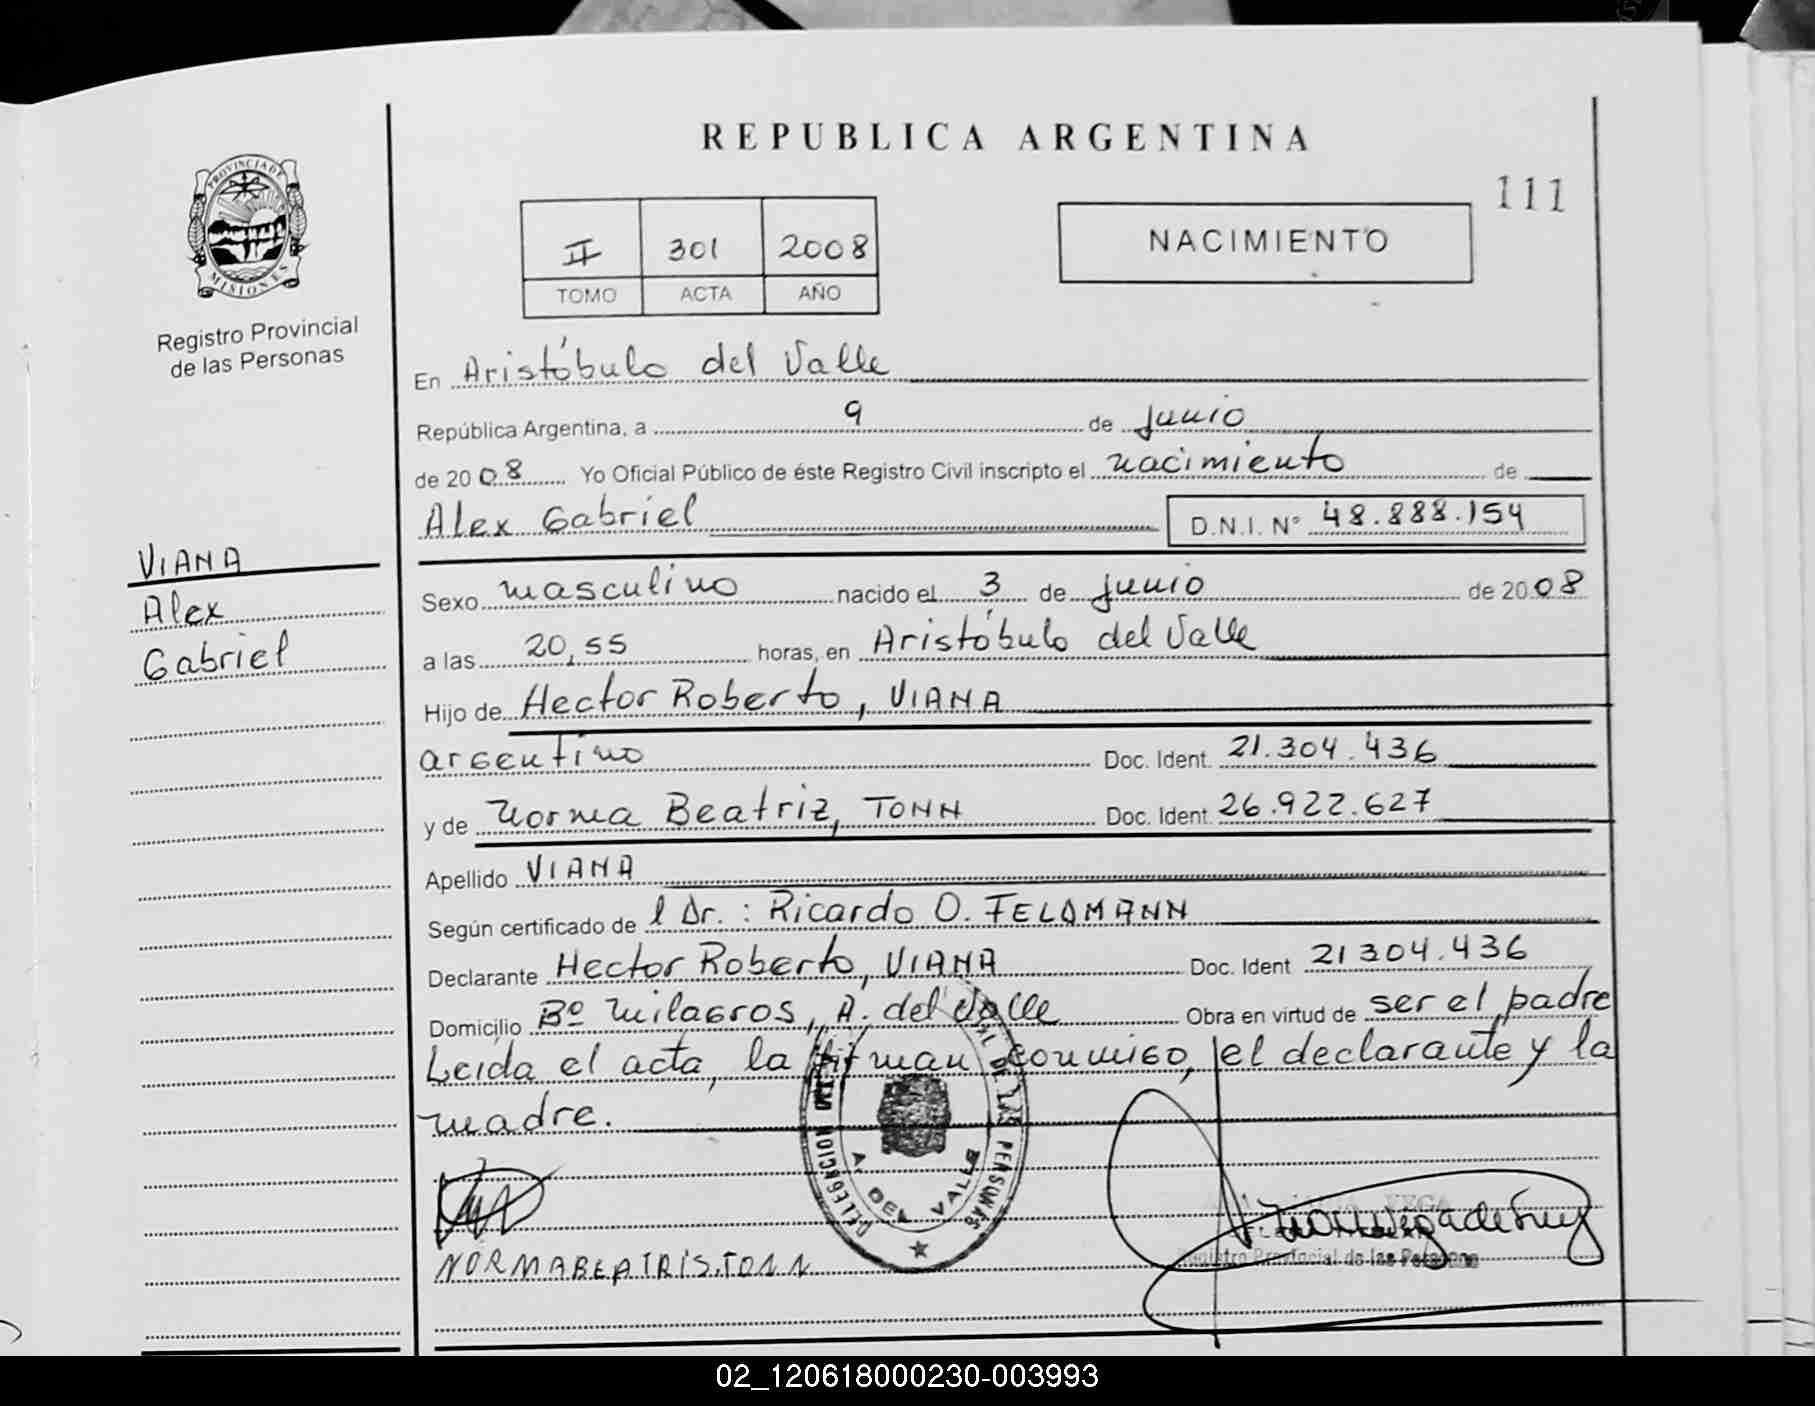 REPUBLICA ARGENTINA
111
PROVINCIA DE MISIONES
Registro Provincial
de las Personas
II 301 2008
TOMO ACTA AÑO
NACIMIENTO
En Aristóbulo del Valle
República Argentina, a 9 de junio
de 2008 Yo Oficial Público de éste Registro Civil inscripto el nacimiento de
Alex Gabriel D.N.I. N° 48.888.154
VIANA
Alex
Gabriel
Sexo masculino nacido el 3 de junio de 2008
a las 20,55 horas, en Aristóbulo del Valle
Hijo de Hector Roberto, VIANA
argentino Doc. Ident. 21.304.436
y de Norma Beatriz, TONN Doc. Ident. 26.922.627
Apellido VIANA
Según certificado de l Dr.: Ricardo O. FELDMANN
Declarante Hector Roberto, VIANA Doc. Ident 21304.436
Domicilio Bº Milagros, A. del Valle Obra en virtud de ser el padre
Leida el acta, la firman conmigo, el declarante y la
madre.
A. DEL VALLE
NORMABEATRIS.TONN
Registro Provincial de las Personas
02_120618000230-003993